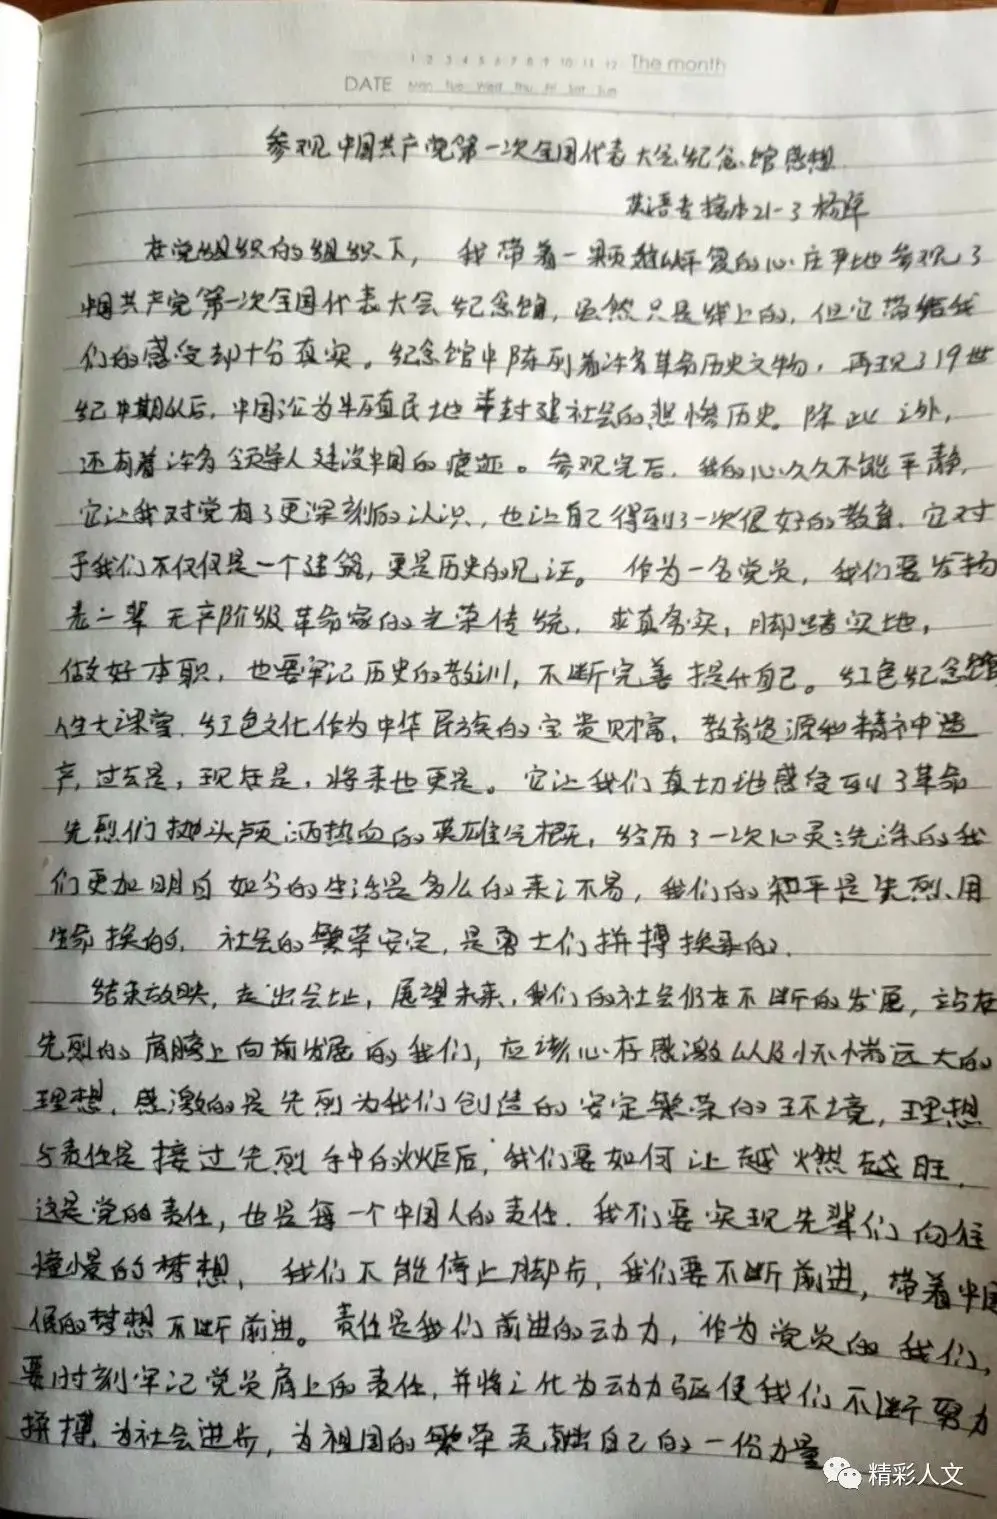 1 2 3 4 5 6 7 8 9 10 11 12 The month
DATE Mon Tue Wed Thu Fri Sat Sun
参观中国共产党第一次全国代表大会纪念馆感想
英语专接本21-3 杨
在党组织的组织下，我带着一颗难以平复的心庄严地参观了
中国共产党第一次全国代表大会纪念馆，虽然只是线上的，但它带给我
们的感受却十分真实。纪念馆中陈列着许多革命历史文物，再现了19世
纪中期以后，中国沦为半殖民地半封建社会的悲惨历史。除此之外，
还有着许多领导人建设中国的痕迹。参观完后，我的心久久不能平静，
它让我对党有了更深刻的认识，也让自己得到了一次很好的教育，它对
于我们不仅仅是一个建筑，更是历史的见证。作为一名党员，我们要发扬
老一辈无产阶级革命家的光荣传统，求真务实，脚踏实地，
做好本职，也要牢记历史的教训，不断完善提升自己。红色纪念馆
人生大课堂，红色文化作为中华民族的宝贵财富，教育资源和精神中遗
产，过去是，现在是，将来也更是。它让我们真切地感受到了革命
先烈们抛头颅洒热血的英雄气概，经历了一次心灵洗涤的我
们更加明白如今的生活是多么的来之不易，我们的和平是先烈用
生命换的，社会的繁荣安定，是勇士们拼搏换来的，
结束放映，走出会址，展望未来，我们的社会仍在不断的发展，站在
先烈的肩膀上向前发展的我们，应该心存感激以及怀揣远大的
理想，感激的是先烈为我们创造的安定繁荣的环境，理想
与责任是接过先烈手中的火炬后，我们要如何让越燃越旺，
这是党的责任，也是每一个中国人的责任．我们要实现先辈们向往
憧憬的梦想，我们不能停止脚步，我们要不断前进，带着中国
人民的梦想不断前进。责任是我们前进的动力，作为党员的我们，
要时刻牢记党员肩上的责任，并将之化为动力驱使我们不断努力
拼搏，为社会进步，为祖国的繁荣贡献出自己的一份力量
精彩人文